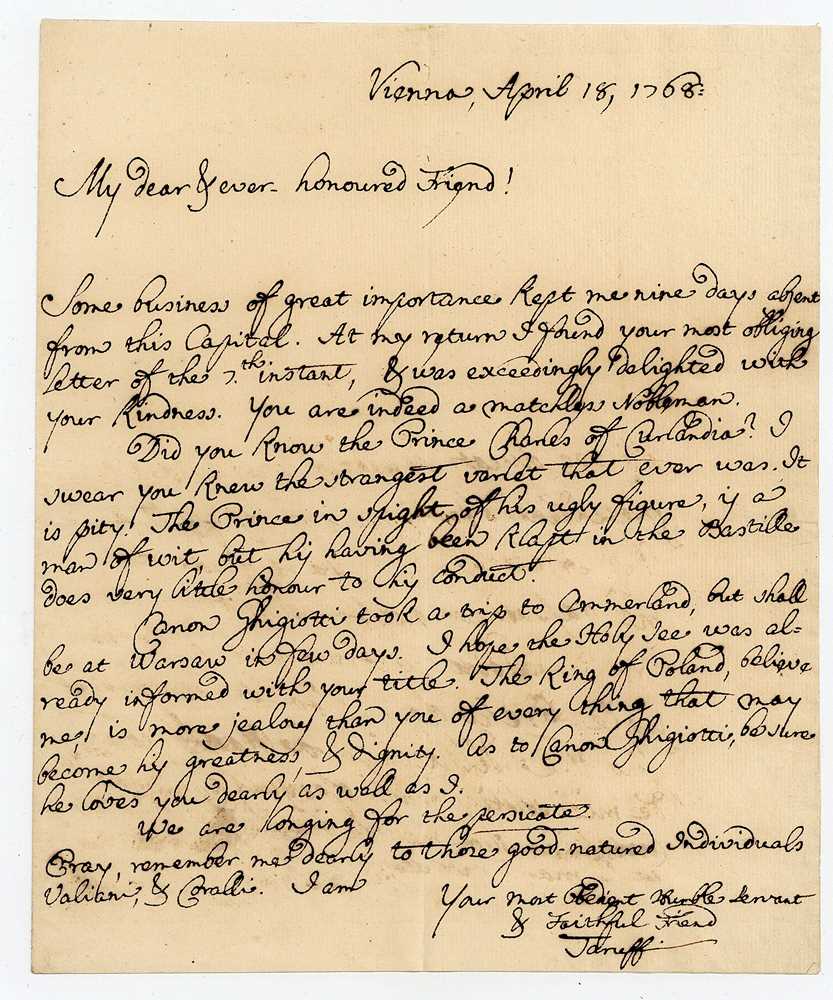 Vienna, April 18, 1768:
My dear & ever-honoured Friend!
Some business of great importance kept me nine days absent
from this Capital. At my return I found your most obliging
letter of the 7.th instant, & was exceedingly delighted with
your kindness. You are indeed a matchless Nobleman.
Did you know the Prince Charles of Curlandia? I
swear you knew the strangest varlet that ever was. It
is pity! The Prince in spight of his ugly figure, is a
man of wit, but his having been klapt in the Bastille
does very little honour to his conduct.
Canon Ghigiotti took a trip to Ammerland, but shall
be at Warsaw in few days. I hope the Holy See was al-
ready informed with your title. The King of Poland, believe
me, is more jealous than you of every thing that may
become his greatness, & dignity. As to Canon Ghigiotti, be sure
he loves you dearly as well as I.
We are longing for the persicate.
Pray, remember me dearly to those good-natured Individuals
Valiani, & Coralli. I am
Your most Obedient Humble Servant
& Faithful Friend
Taruffi